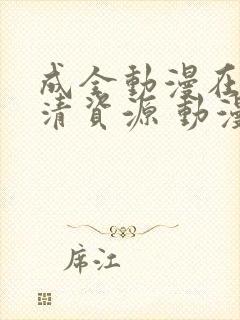 成全動漫在
清資源 動漫
席江